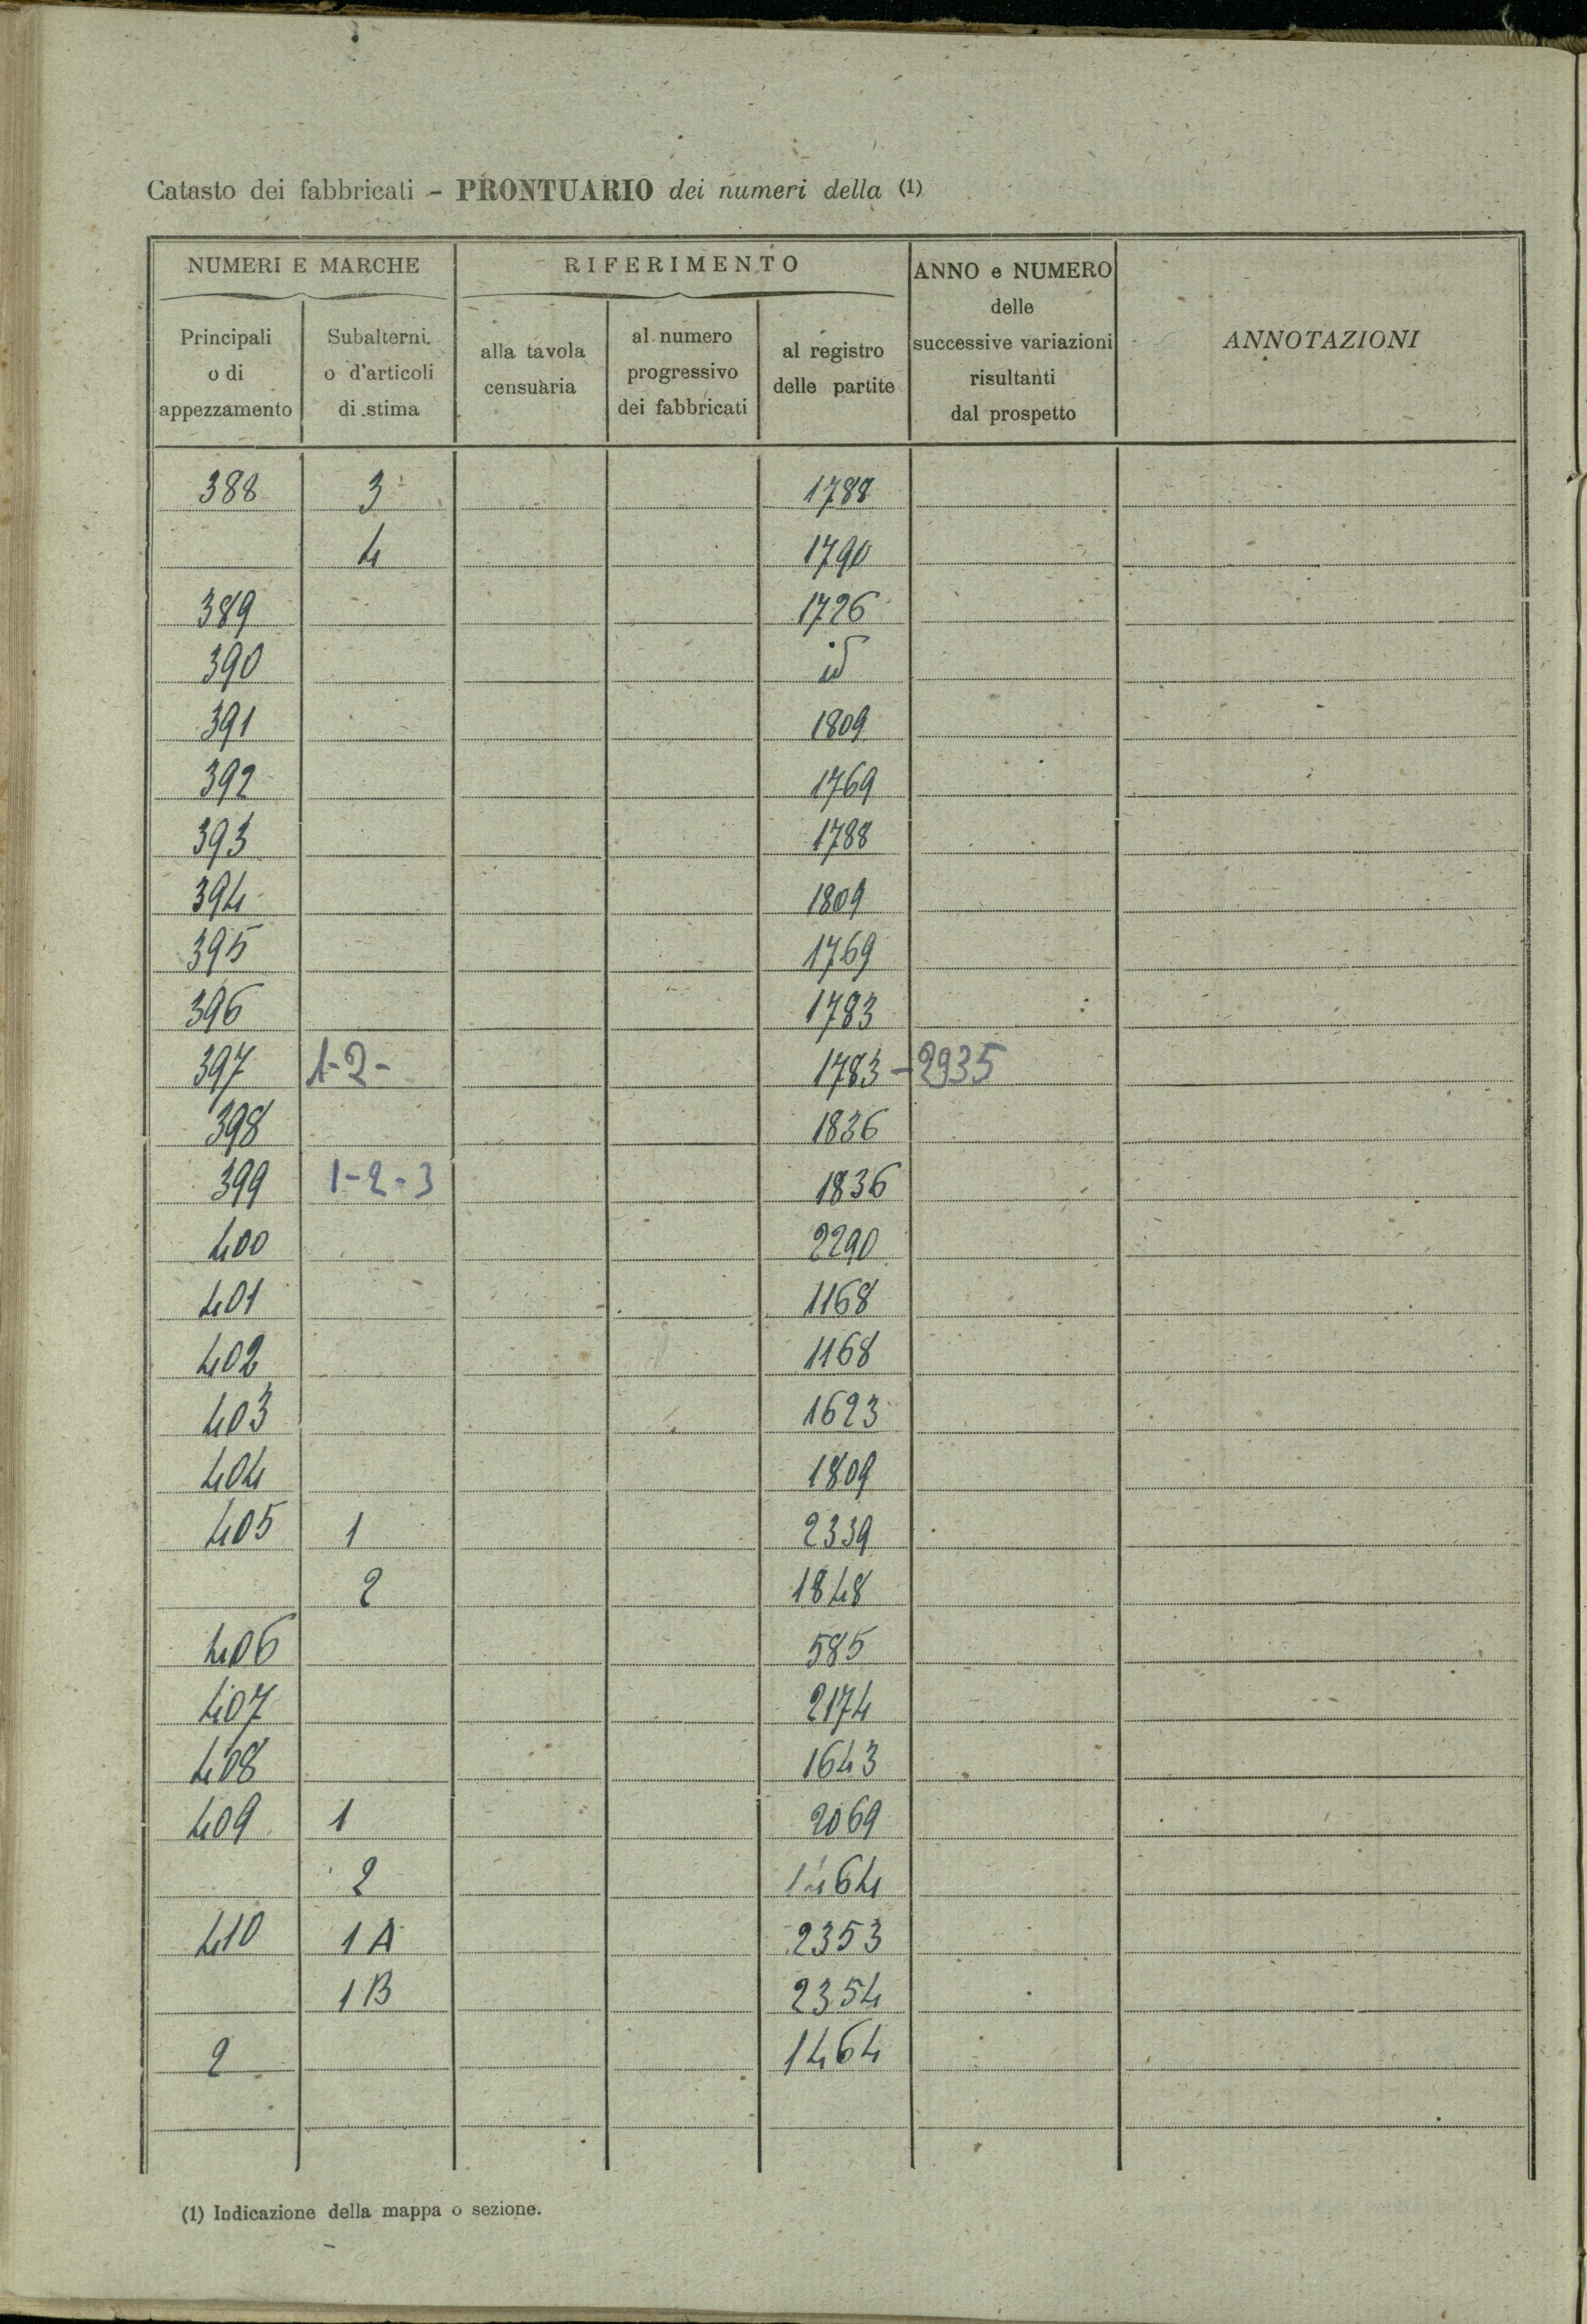 Catasto dei fabbricati – PRONTUARIO dei numeri della (1)
NUMERI E MARCHE
RIFERIMENTO
ANNO e NUMERO
delle
successive variazioni
risultanti
dal prospetto
ANNOTAZIONI
Principali
o di
appezzamento
Subalterni
o d'articoli
di stima
alla tavola
censuaria
al numero
progressivo
dei fabbricati
al registro
delle partite
388 3 1788
4 1790
389 1726
390 id
391 1809
392 1769
393 1788
394 1809
395 1769
396 1783
397 1-2- 1783 - 2935
398 1836
399 1-2-3 1836
400 2290
401 1168
402 1168
403 1623
404 1809
405 1 2339
2 1848
406 585
407 2174
408 1643
409 1 2069
2 1464
410 1A 2353
1B 2354
2 1464
(1) Indicazione della mappa o sezione.